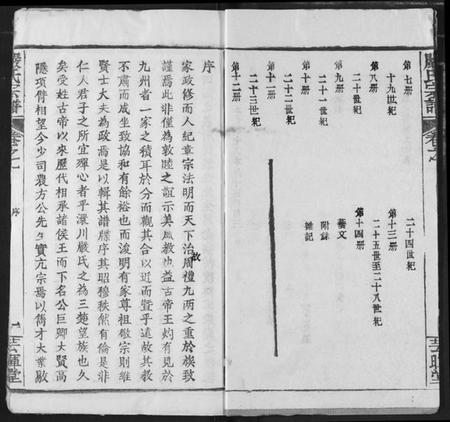 嚴氏宗譜 卷之一
第七册
十九世紀
第八册
二十世紀
第九册
二十一世紀
第十册
二十二世紀
第十一册
二十三世紀
第十二册
二十四世紀
第十三册
二十五世至二十八世紀
第十四册
藝文
附錄
雜記
序
家政修而人紀章宗法明而天下治周禮九兩之重於族致
謹焉此非僅為敦睦之誼示美風教也益古帝王灼有見於
九州者一家之積耳於分而觀其合以近而暨乎遠故其教
不肅而成坐致協和有餘裕也而浚明有家尊祖敬宗則維
賢士大夫為政焉是以輯其譜牒序其昭穆秩然有倫是非
仁人君子之所宜殫心者乎漾川嚴氏之為三楚望族也久
矣受姓古帝以來歷代相承諸侯王而下名公巨卿大賢高
隱項背相望今少司農方公先生實亢宗焉以儁才大業敭
嚴氏宗譜 卷之一 序 一